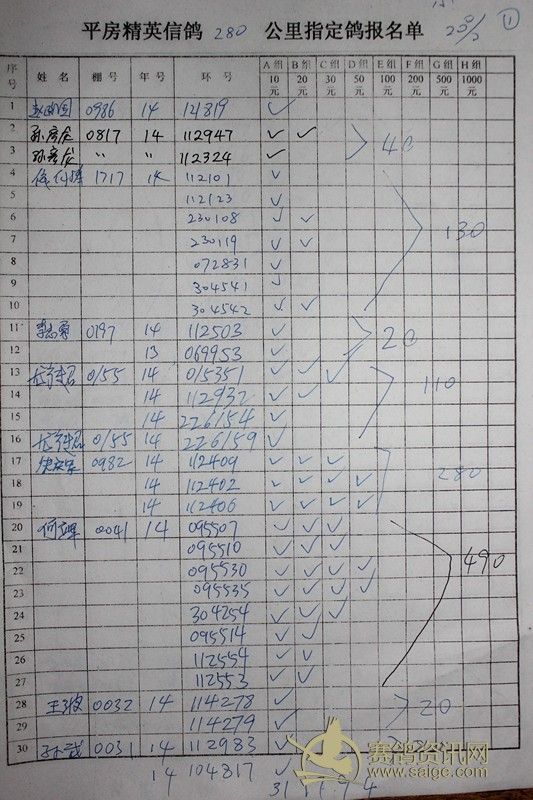 20号 ①
平房精英信鸽 280 公里指定鸽报名单
序号 姓名 棚号 年号 环号 A组10元 B组20元 C组30元 D组50元 E组100元 F组200元 G组500元 H组1000元
1 0986 14 121819 ✓
2 0817 14 112947 ✓ ✓ 40
3 〃 〃 112324 ✓
4 1717 14 112101 ✓
5 112123 ✓
6 230108 ✓ ✓ 130
7 230119 ✓ ✓
8 072831 ✓
9 304541 ✓
10 304542 ✓ ✓
11 0197 14 112503 ✓ 20
12 13 069953 ✓
13 0155 14 015351 ✓ ✓ ✓
14 14 112932 ✓ ✓ 110
15 14 226154 ✓
16 0155 14 226159 ✓
17 0982 14 112409 ✓ ✓ ✓
18 14 112402 ✓ ✓ ✓ ✓ 280
19 14 112406 ✓ ✓ ✓ ✓
20 0041 14 095507 ✓ ✓ ✓
21 095510 ✓ ✓ ✓
22 095530 ✓ ✓ ✓ ✓ 490
23 095535 ✓ ✓ ✓ ✓
24 304254 ✓ ✓ ✓
25 095514 ✓ ✓
26 112554 ✓ ✓
27 112553 ✓ ✓
28 王波 0032 14 114278 ✓ 20
29 114279 ✓
30 0031 14 112983 ✓
14 104817 ✓
31
赛鸽资讯网
www.saige.com